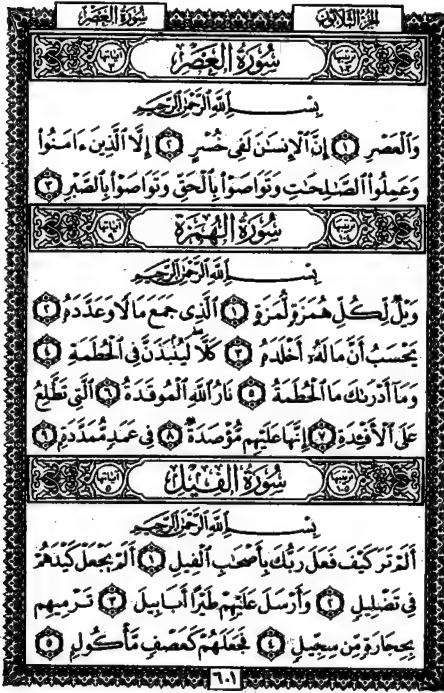 سُورَةُ العَصْرِ
الجُزْءُ الثَّلَاثُونَ
سُورَةُ العَصْرِ
بِسْمِ اللَّهِ الرَّحْمَٰنِ الرَّحِيمِ
وَالْعَصْرِ ١ إِنَّ الْإِنسَٰنَ لَفِى خُسْرٍ ٢ إِلَّا الَّذِينَ ءَامَنُوا۟
وَعَمِلُوا۟ الصَّٰلِحَٰتِ وَتَوَاصَوْا۟ بِالْحَقِّ وَتَوَاصَوْا۟ بِالصَّبْرِ ٣
سُورَةُ الهُمَزَةِ
بِسْمِ اللَّهِ الرَّحْمَٰنِ الرَّحِيمِ
وَيْلٌ لِّكُلِّ هُمَزَةٍ لُّمَزَةٍ ١ الَّذِى جَمَعَ مَالًا وَعَدَّدَهُۥ ٢
يَحْسَبُ أَنَّ مَالَهُۥٓ أَخْلَدَهُۥ ٣ كَلَّا ۖ لَيُنۢبَذَنَّ فِى الْحُطَمَةِ ٤
وَمَآ أَدْرَىٰكَ مَا الْحُطَمَةُ ٥ نَارُ اللَّهِ الْمُوقَدَةُ ٦ الَّتِى تَطَّلِعُ
عَلَى الْأَفْـِٔدَةِ ٧ إِنَّهَا عَلَيْهِم مُّؤْصَدَةٌ ٨ فِى عَمَدٍ مُّمَدَّدَةٍۭ ٩
سُورَةُ الفِيلِ
بِسْمِ اللَّهِ الرَّحْمَٰنِ الرَّحِيمِ
أَلَمْ تَرَ كَيْفَ فَعَلَ رَبُّكَ بِأَصْحَٰبِ الْفِيلِ ١ أَلَمْ يَجْعَلْ كَيْدَهُمْ
فِى تَضْلِيلٍ ٢ وَأَرْسَلَ عَلَيْهِمْ طَيْرًا أَبَابِيلَ ٣ تَرْمِيهِم
بِحِجَارَةٍ مِّن سِجِّيلٍ ٤ فَجَعَلَهُمْ كَعَصْفٍ مَّأْكُولٍۭ ٥
٦٠١